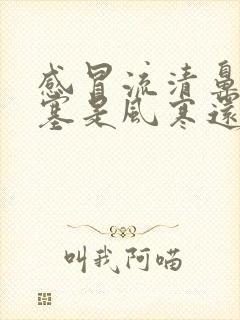 感冒流清鼻
塞是風寒還
叫我阿喵